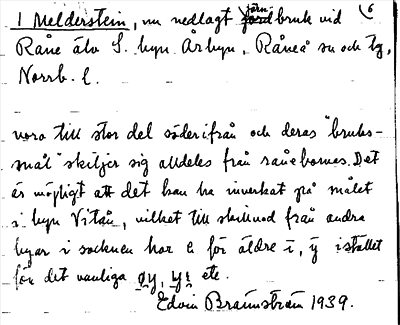 6
I Melderstein, nu nedlagt järnbruk vid
Råne älv S. byn Årbyn, Råneå sn och tg,
Norrb. l.
voro till stor del söderifrån och deras "bruks-
mål" skiljer sig alldeles från rånebornas. Det
är möjligt att det kan ha inverkat på målet
i byn Vitån, vilket till skillnad från andra
byar i socknen har e för äldre ī, ȳ istället
för det vanliga øy, yi etc.
Edvin Brännström 1939.